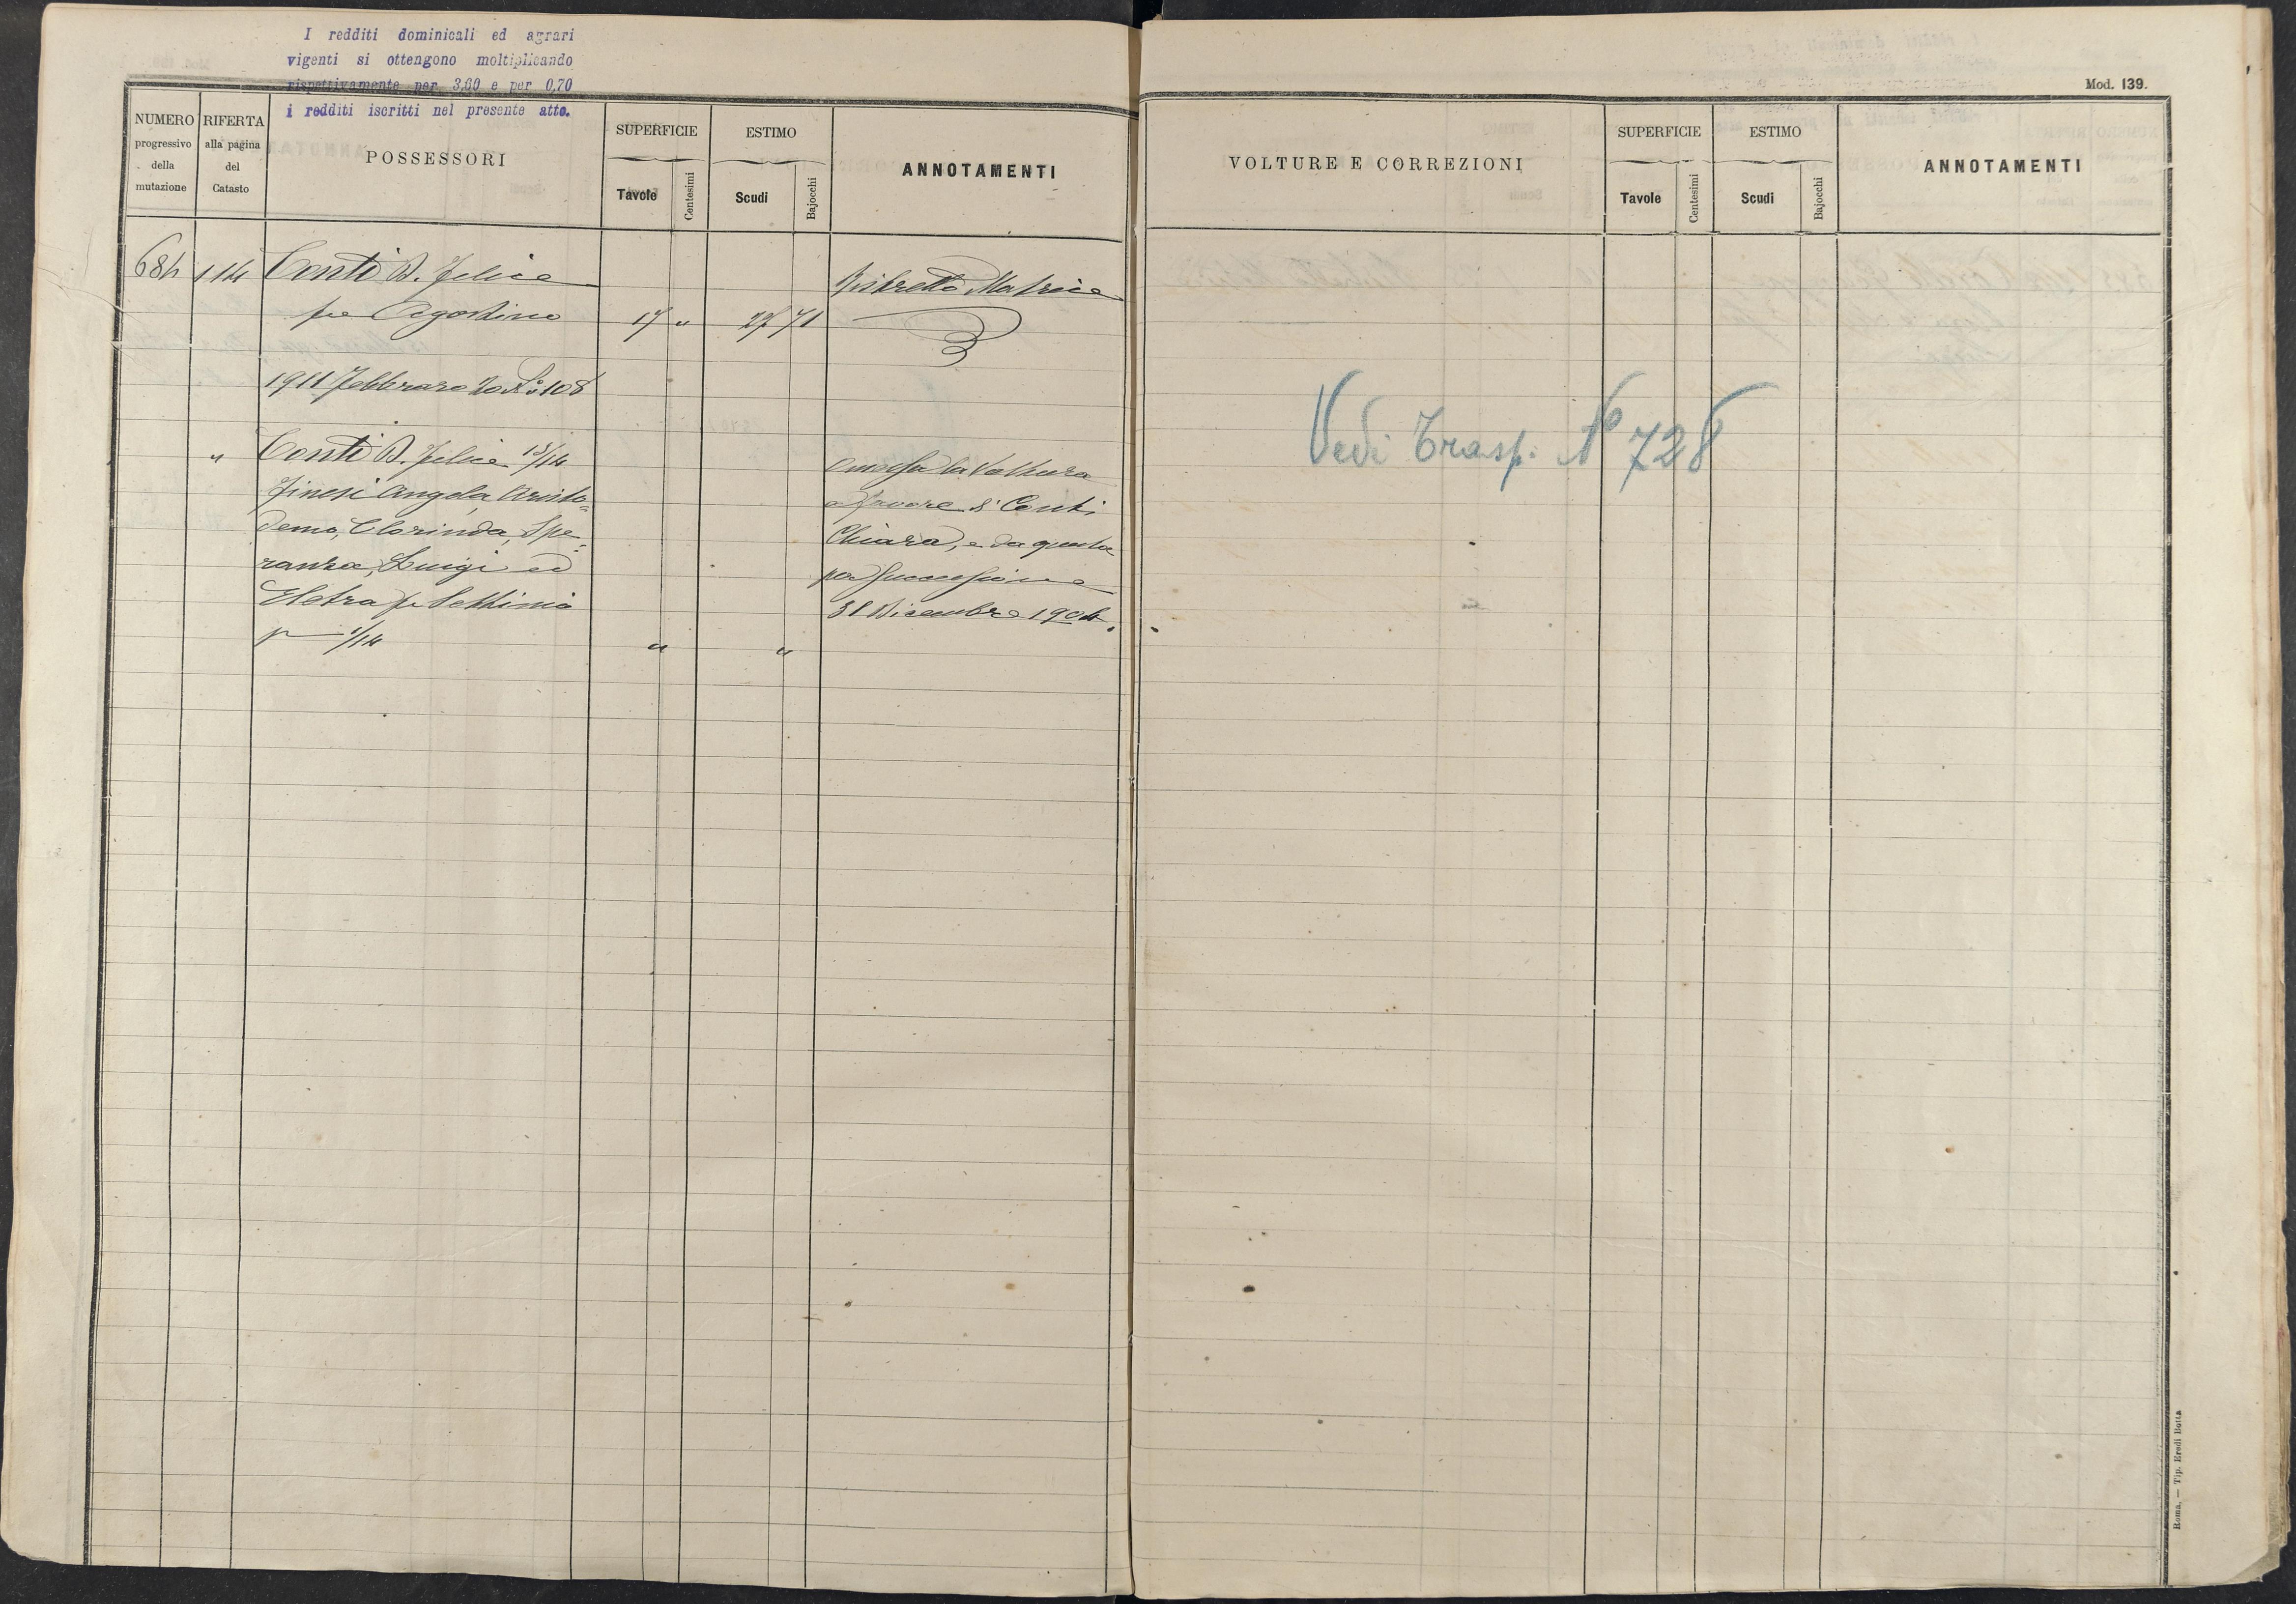 I redditi dominicali ed agrari
vigenti si ottengono moltiplicando
rispettivamente per 3,60 e per 0,70
i redditi iscritti nel presente atto.
Mod. 139.
NUMERO progressivo della mutazione
RIFERTA alla pagina del Catasto
POSSESSORI
SUPERFICIE
Tavole Centesimi
ESTIMO
Scudi Bajocchi
ANNOTAMENTI
VOLTURE E CORREZIONI
SUPERFICIE
Tavole Centesimi
ESTIMO
Scudi Bajocchi
ANNOTAMENTI
684 114 Conti D. Felice Ristretto Matrice
fu Agostino 17 " 27 71
1911 Febbraro 20 N° 108
" Conti D. Felice 13/14
Finesi Angela, Aristo=
demo, Clorinda, Spe=
ranza, Luigi ed
Eletra fu Settimio
p 1/14 " "
Omessa la Voltura
a favore di Conti
Chiara, e da questa
per Successione
31 Dicembre 1904.
Vedi Trasp. N° 728
Roma, — Tip. Eredi Botta